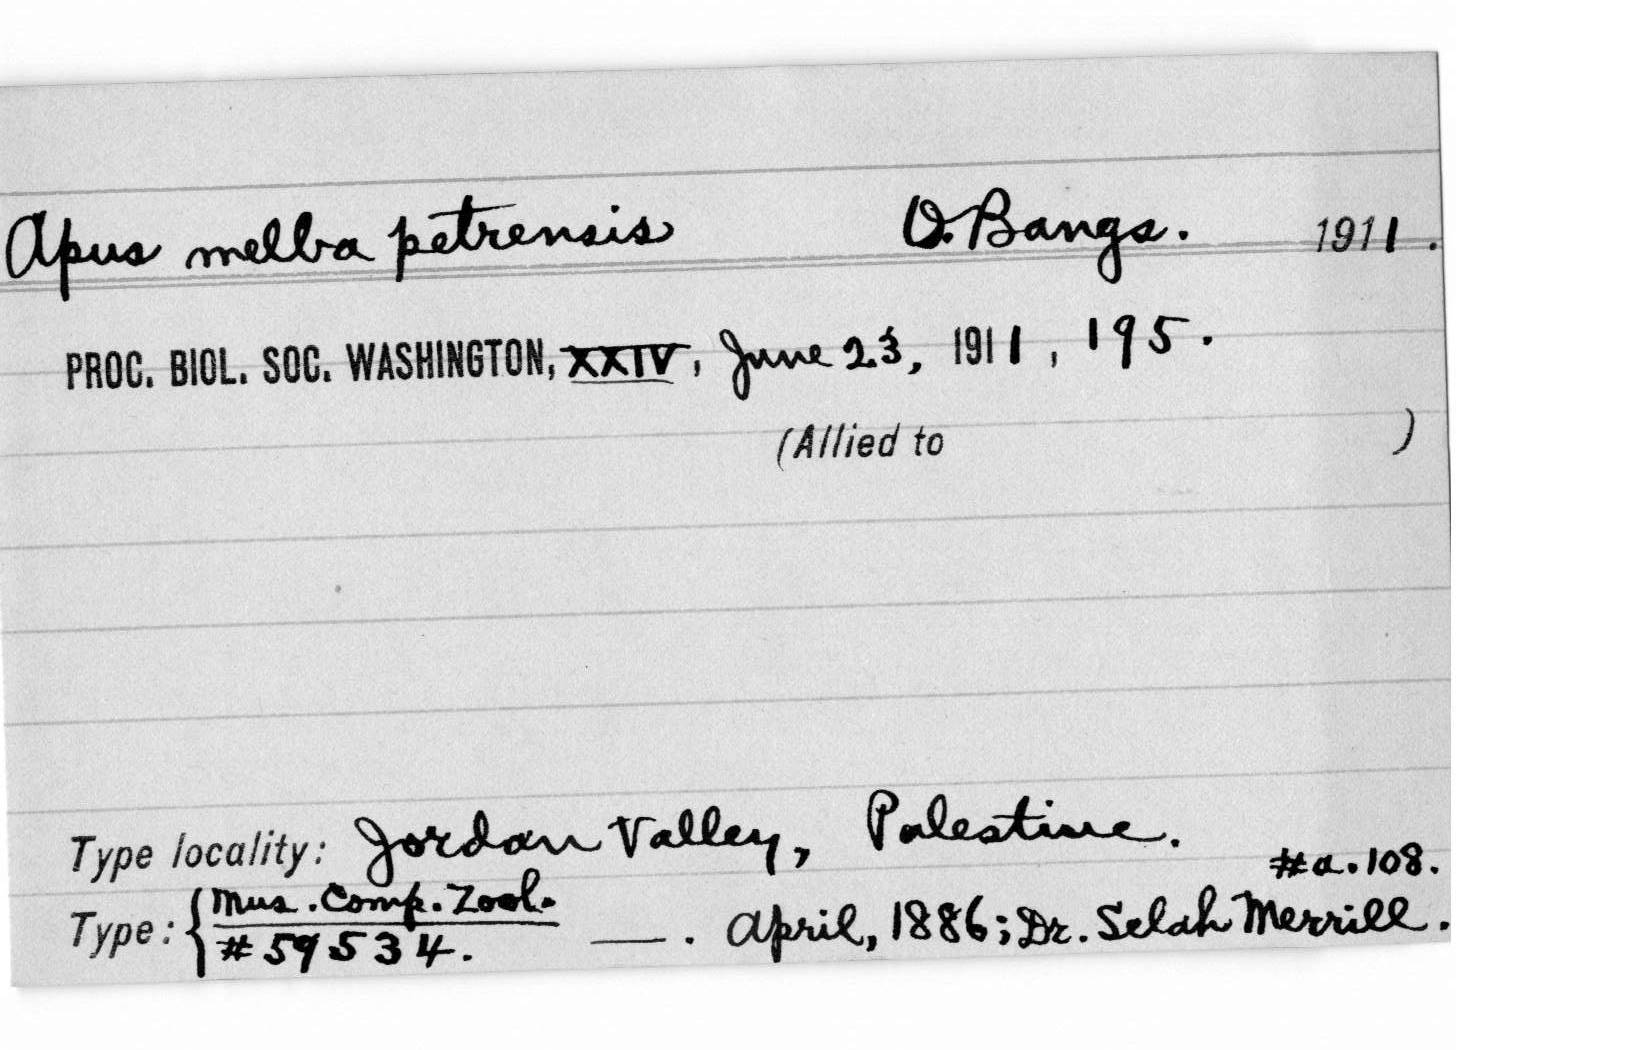 Apus melba petrensis O. Bangs. 1911.
PROC. BIOL. SOC. WASHINGTON, XXIV, June 23, 1911, 195.
(Allied to )
Type locality: Jordan Valley, Palestine.
#a.108.
Type: { Mus. Comp. Zool.
#59534. —. April, 1886; Dr. Selah Merrill.